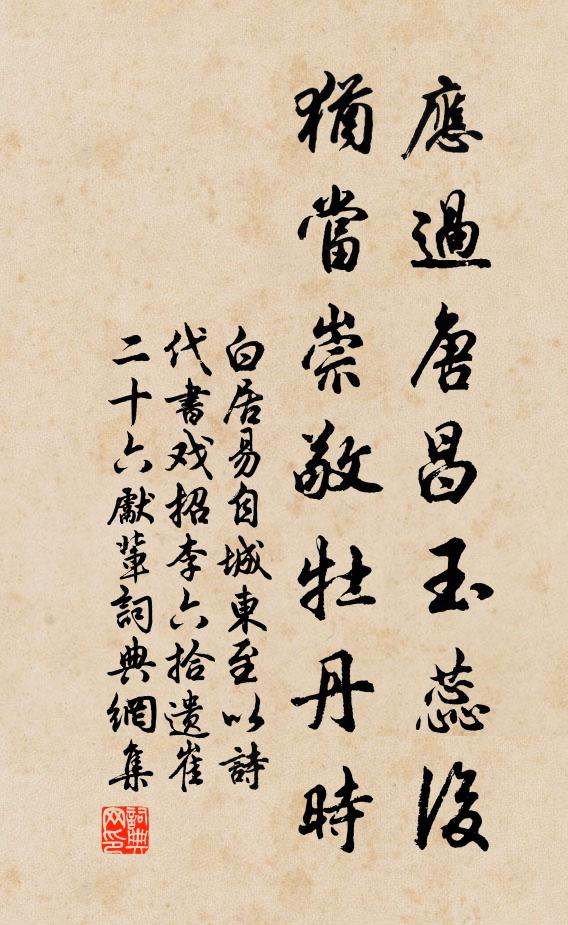 應過唐昌玉蕊後
猶當崇敬牡丹時
白居易自城東至以詩
代書戏招李六拾遺崔
二十六獻輩詞典網集
詞典
网印